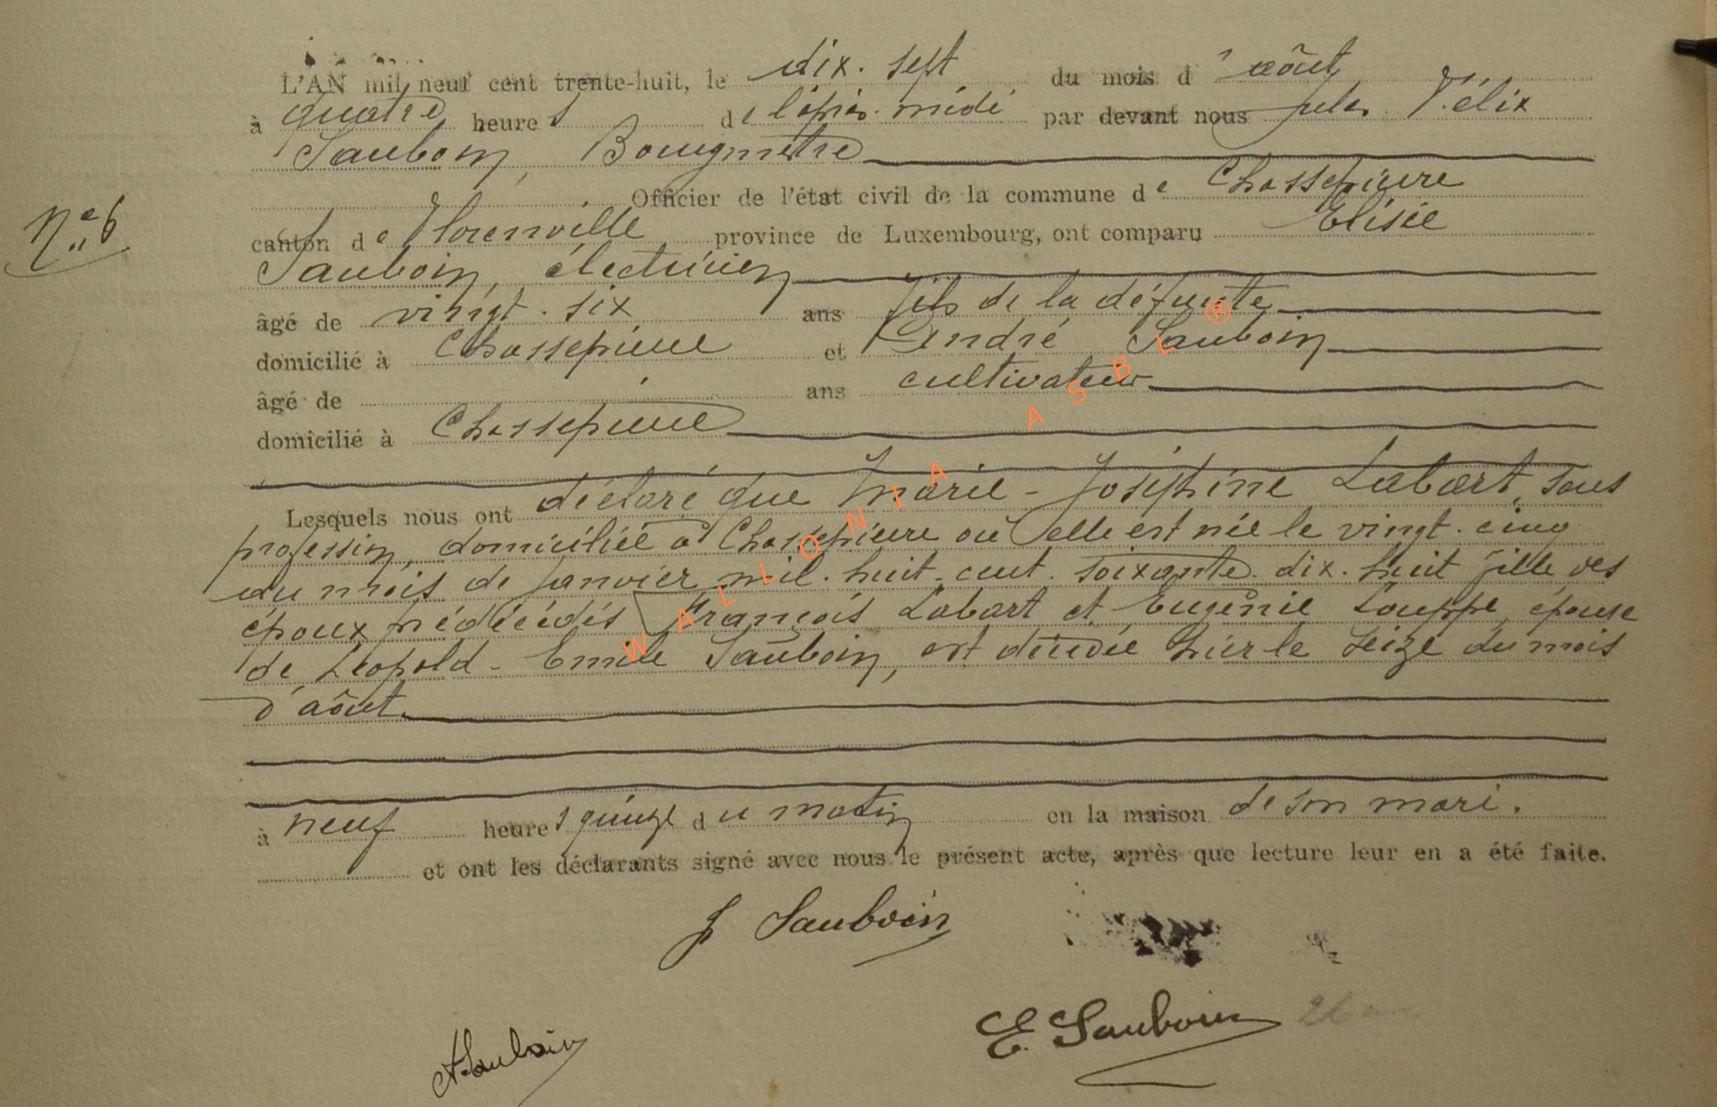 L'AN mil neuf cent trente-huit, le dix-sept du mois d'août
à quatre heures de l'après-midi par devant nous Jules Félix
Sauboin, Bourgmestre
Officier de l'état civil de la commune de Chassepierre
N° 6
canton de Florenville province de Luxembourg, ont comparu Elisée
Sauboin, électricien
âgé de vingt-six ans fils de la défunte
domicilié à Chassepierre et André Sauboin
âgé de ans cultivateur
domicilié à Chassepierre
Lesquels nous ont déclaré que Marie-Joséphine Labart, sans
profession, domiciliée à Chassepierre où elle est née le vingt-cinq
du mois de janvier mil-huit-cent-soixante-dix-huit fille des
époux prédécédés François Labart et Eugénie Louppe, épouse
de Léopold-Emile Sauboin, est décédée hier le seize du mois
d'août
à neuf heures quinze du matin en la maison de son mari.
et ont les déclarants signé avec nous le présent acte, après que lecture leur en a été faite.
J Sauboin
E. Sauboin
A Sauboin
WALLONIA ASBL ®